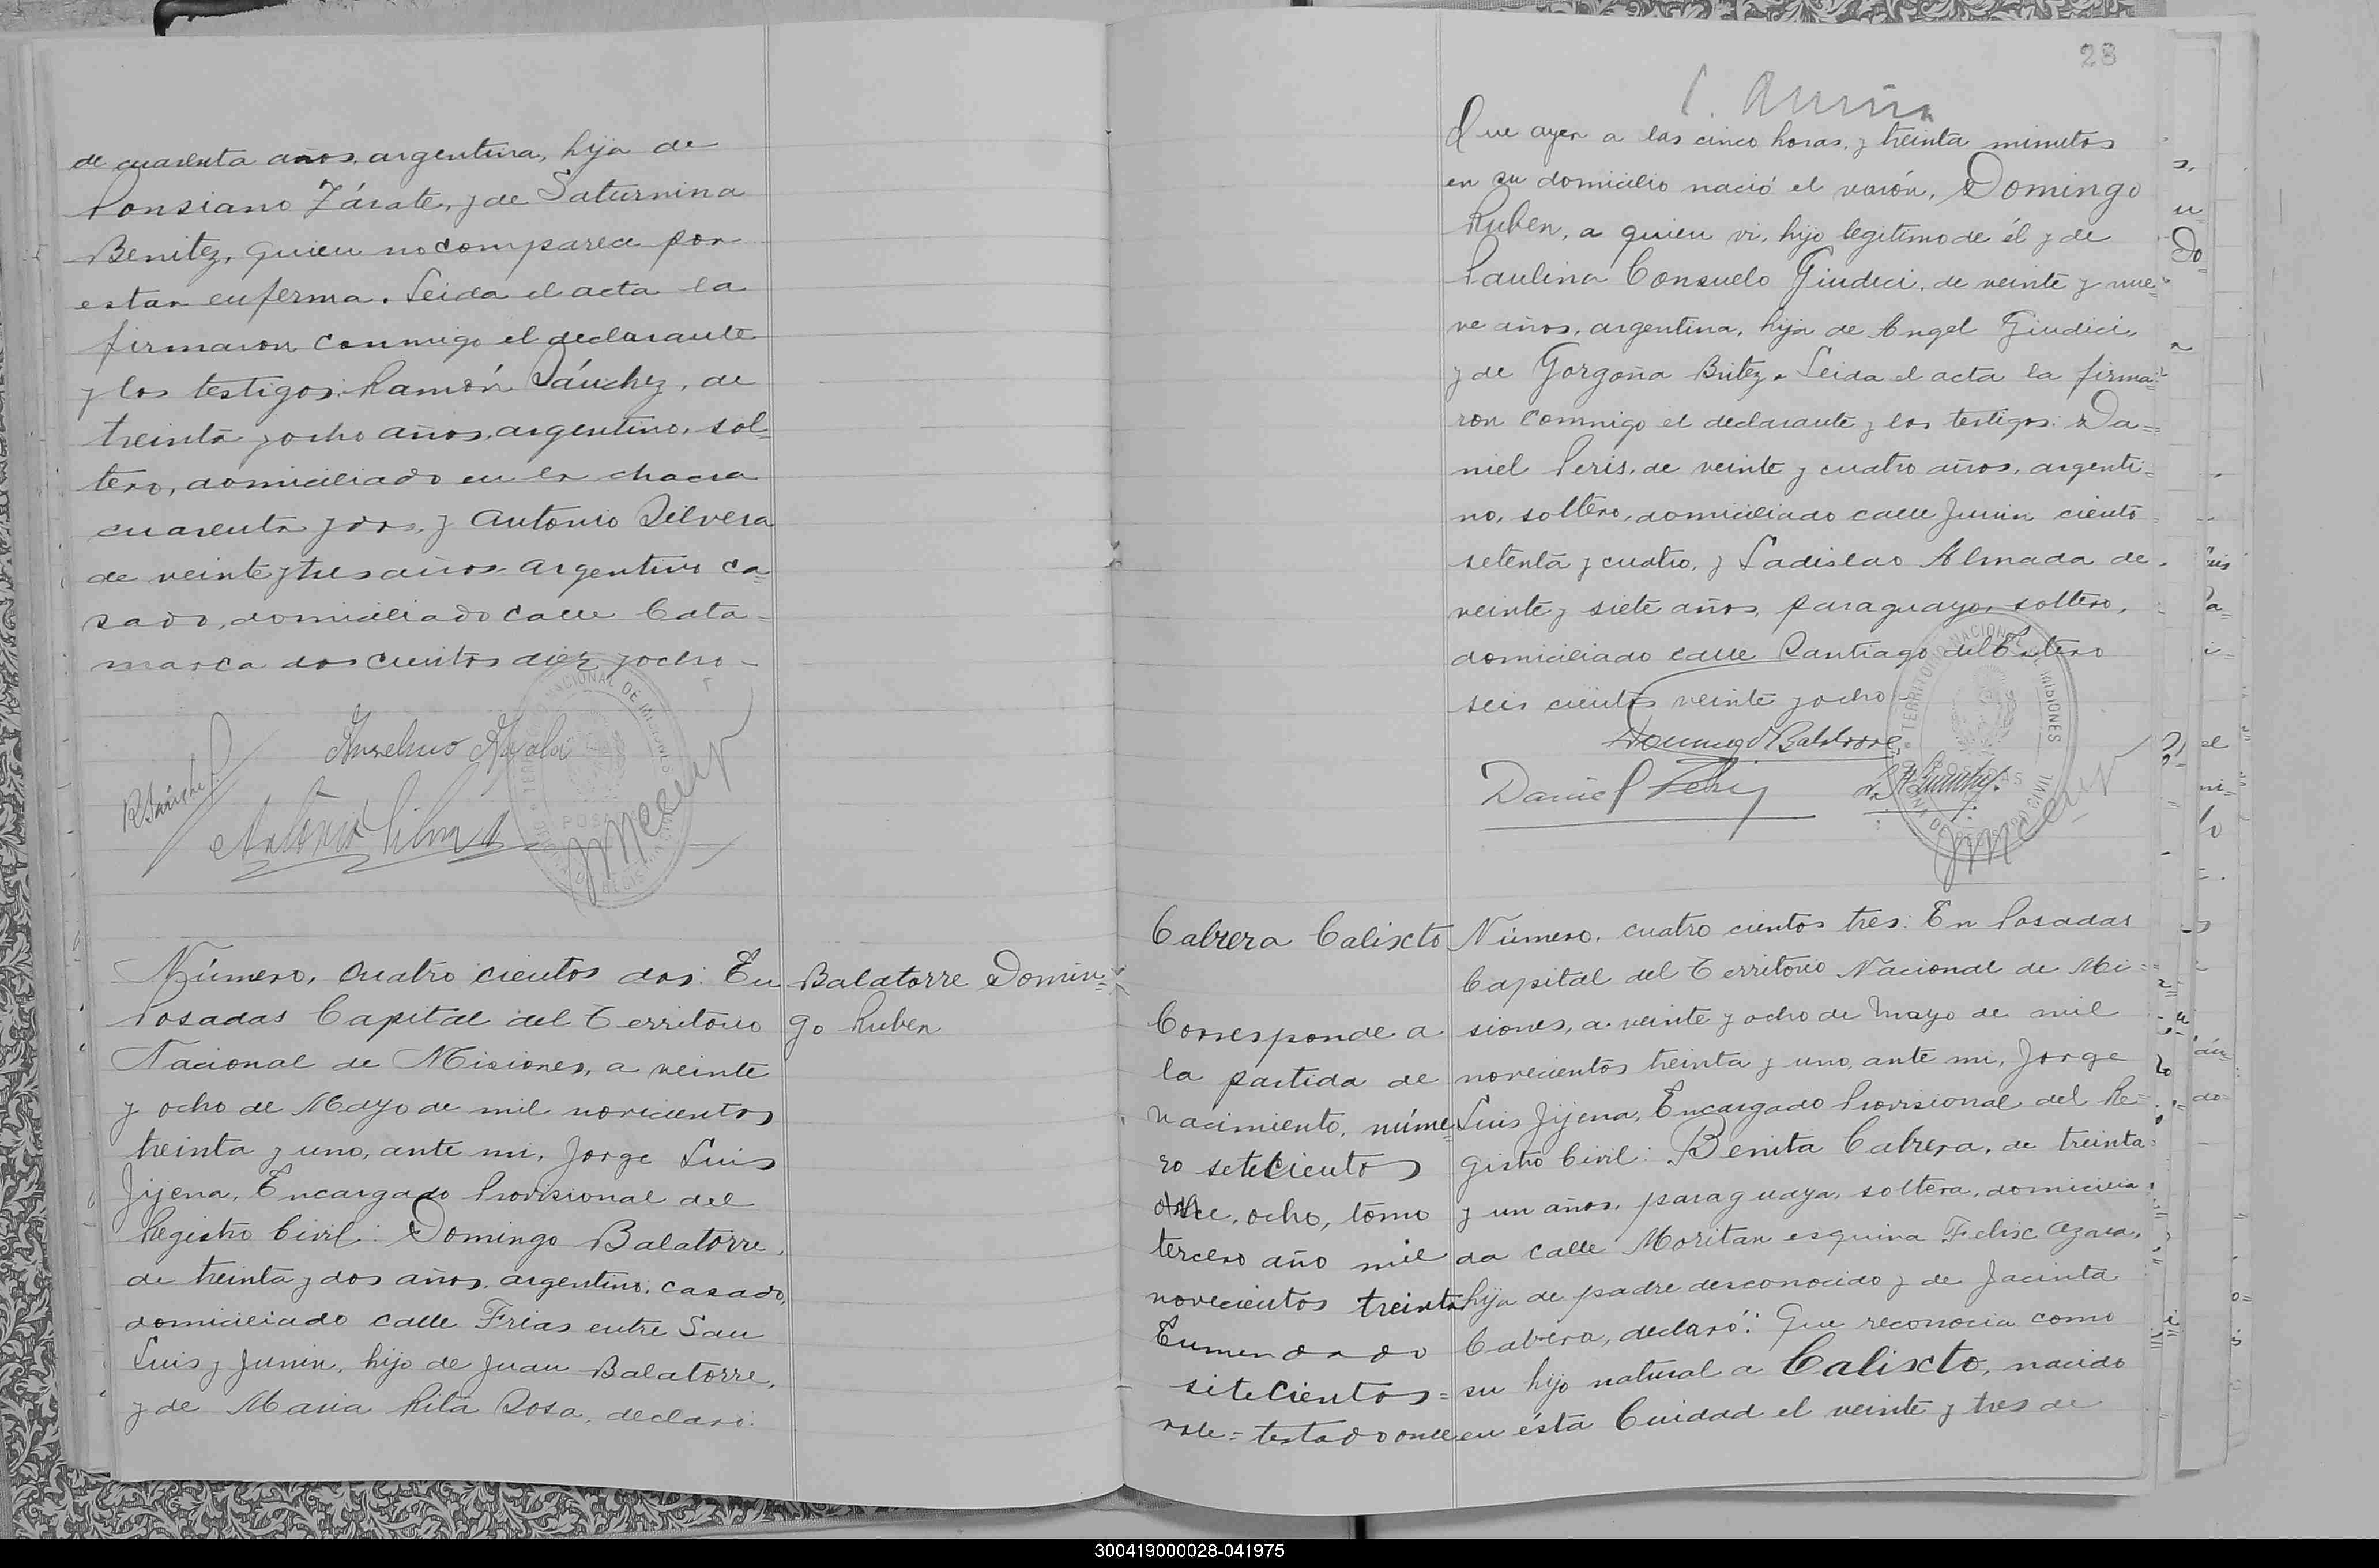 de cuarenta años, argentina, hija de
Ponsiano Zárate, y de Saturnina
Benitez, quien no comparece por
estar enferma. Leida el acta la
firmaron conmigo el declarante
y los testigos: Ramón Sánchez, de
treinta y ocho años, argentino, sol=
tero, domiciliado en la chacra
cuarenta y dos, y Antonio Silvera
de veinte y tres años, argentino ca=
sado, domiciliado calle Cata=
marca doscientos diez y ocho
Anselmo Ayala
R. Sánchez
Antonio Silvera
TERRITORIO NACIONAL DE MISIONES
POSADAS
Número, cuatro cientos dos: En
Posadas Capital del Territorio
Nacional de Misiones, a veinte
y ocho de Mayo de mil novecientos
treinta y uno, ante mi, Jorge Luis
Jijena, Encargado Provisional del
Registro Civil: Domingo Balatorre,
de treinta y dos años, argentino, casado,
domiciliado calle Frias entre San
Luis y Junin, hijo de Juan Balatorre,
y de Maria Rita Sosa, declaró:
Balatorre Domin=
go Ruben
28
Que ayer a las cinco horas, y treinta minutos
en su domicilio nació el varón, Domingo
Ruben, a quien vi, hijo legitimo de él y de
Paulina Consuelo Giudici, de veinte y nue=
ve años, argentina, hija de Angel Giudici,
y de Gorgoña Britez. Leida el acta la firma=
ron conmigo el declarante y los testigos: Da=
niel Peris, de veinte y cuatro años, argenti=
no, soltero, domiciliado calle Junin ciento
setenta y cuatro, y Ladislao Almada de
veinte y siete años, paraguayo, soltero,
domiciliado calle Santiago del Estero
seis cientos veinte y ocho
Domingo Balatorre
Daniel Peris
TERRITORIO NACIONAL DE MISIONES
POSADAS
Cabrera Calixto
Corresponde a
la partida de
nacimiento, núme
ro setecientos
once, ocho, tomo
tercero año mil
novecientos treinta
Enmendado
setecientos=
vale= testado once
Número, cuatro cientos tres: En Posadas
Capital del Territorio Nacional de Mi=
siones, a veinte y ocho de Mayo de mil
novecientos treinta y uno, ante mi, Jorge
Luis Jijena, Encargado Provisional del Re=
gistro Civil: Benita Cabrera, de treinta
y un años, paraguaya, soltera, domicilia
da calle Moritan esquina Felix Azara,
hija de padre desconocido y de Jacinta
Cabrera, declaró: Que reconocia como
su hijo natural a Calixto, nacido
en ésta Cuidad el veinte y tres de
300419000028-041975